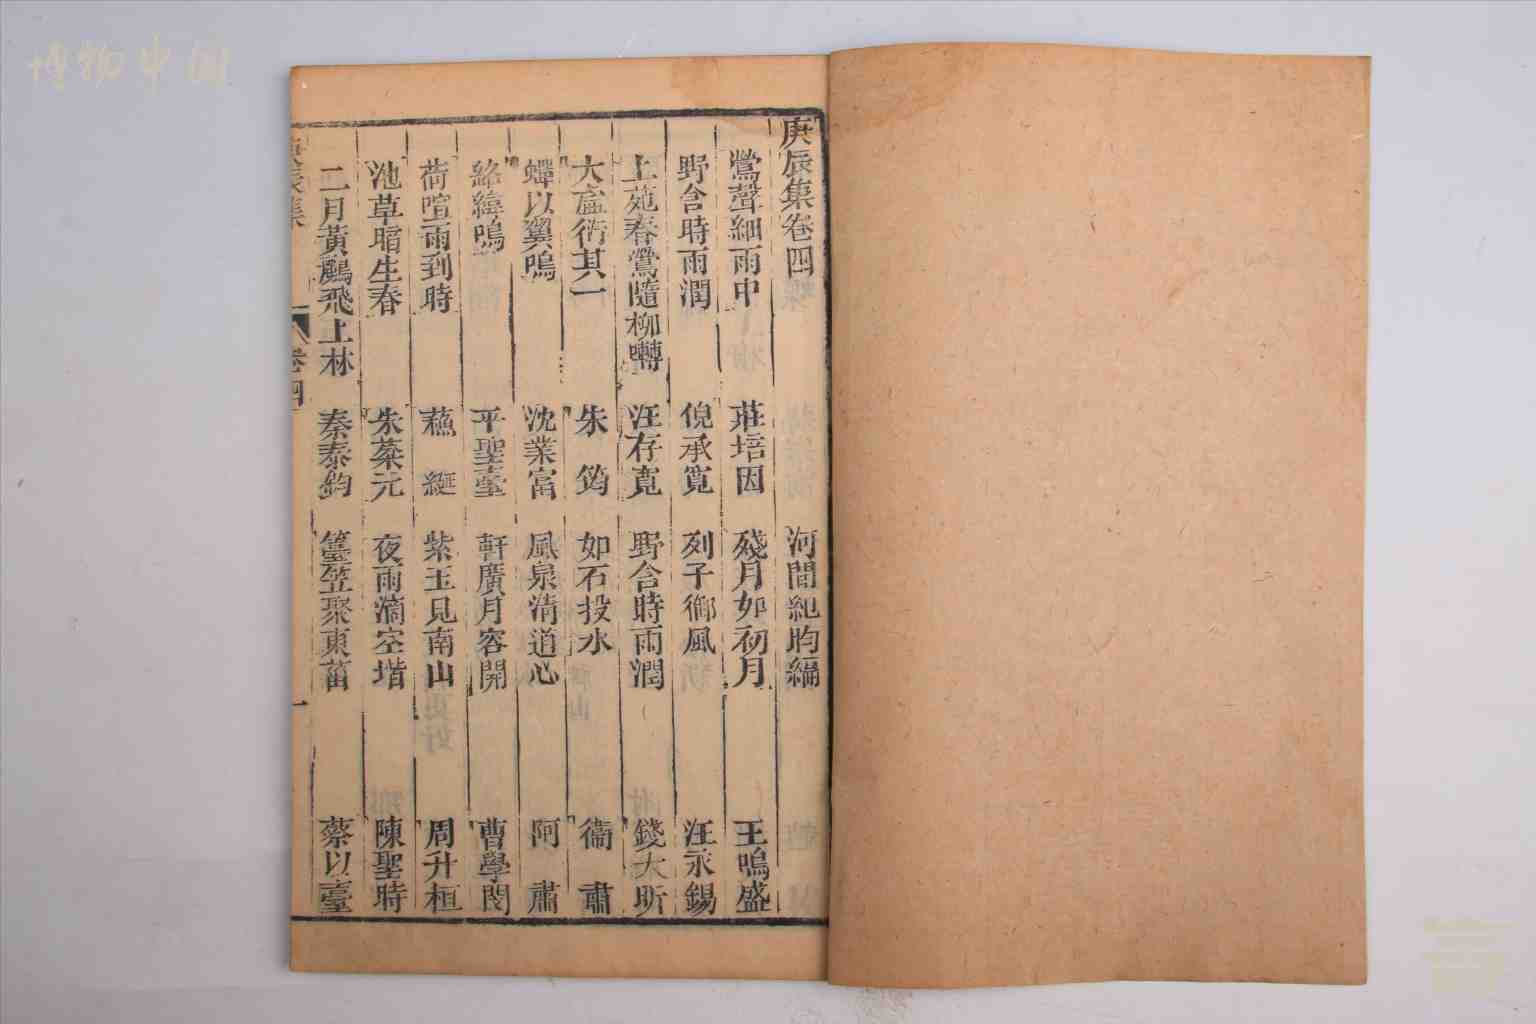 博物中国
庚辰集卷四 河間紀昀編
鶯聲細雨中 莊培因 殘月如初月 王鳴盛
野含時雨潤 倪承寬 列子御風 汪永錫
上苑春鶯隨柳囀 汪存寬 野含時雨潤 錢大昕
大衍其一 朱筠 如石投水 衞肅
蟬以翼鳴 沈業富 風泉清道心 阿肅
絡緯鳴 平聖臺 軒廣月容開 曹學閔
荷喧雨到時 蘓綖 紫玉見南山 周升桓
池草暗生春 朱棻元 夜雨滴空堦 陳聖時
二月黃鸝飛上林 秦泰鈞 臺笠聚東菑 蔡以臺
庚辰集 卷四 一